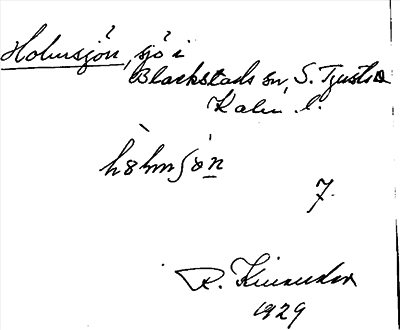 Holmsjön, sjö i
Blackstads sn, S. Tjusts
Kalm. l.
hòlmʃö́n
7.
R. Kinander
1929